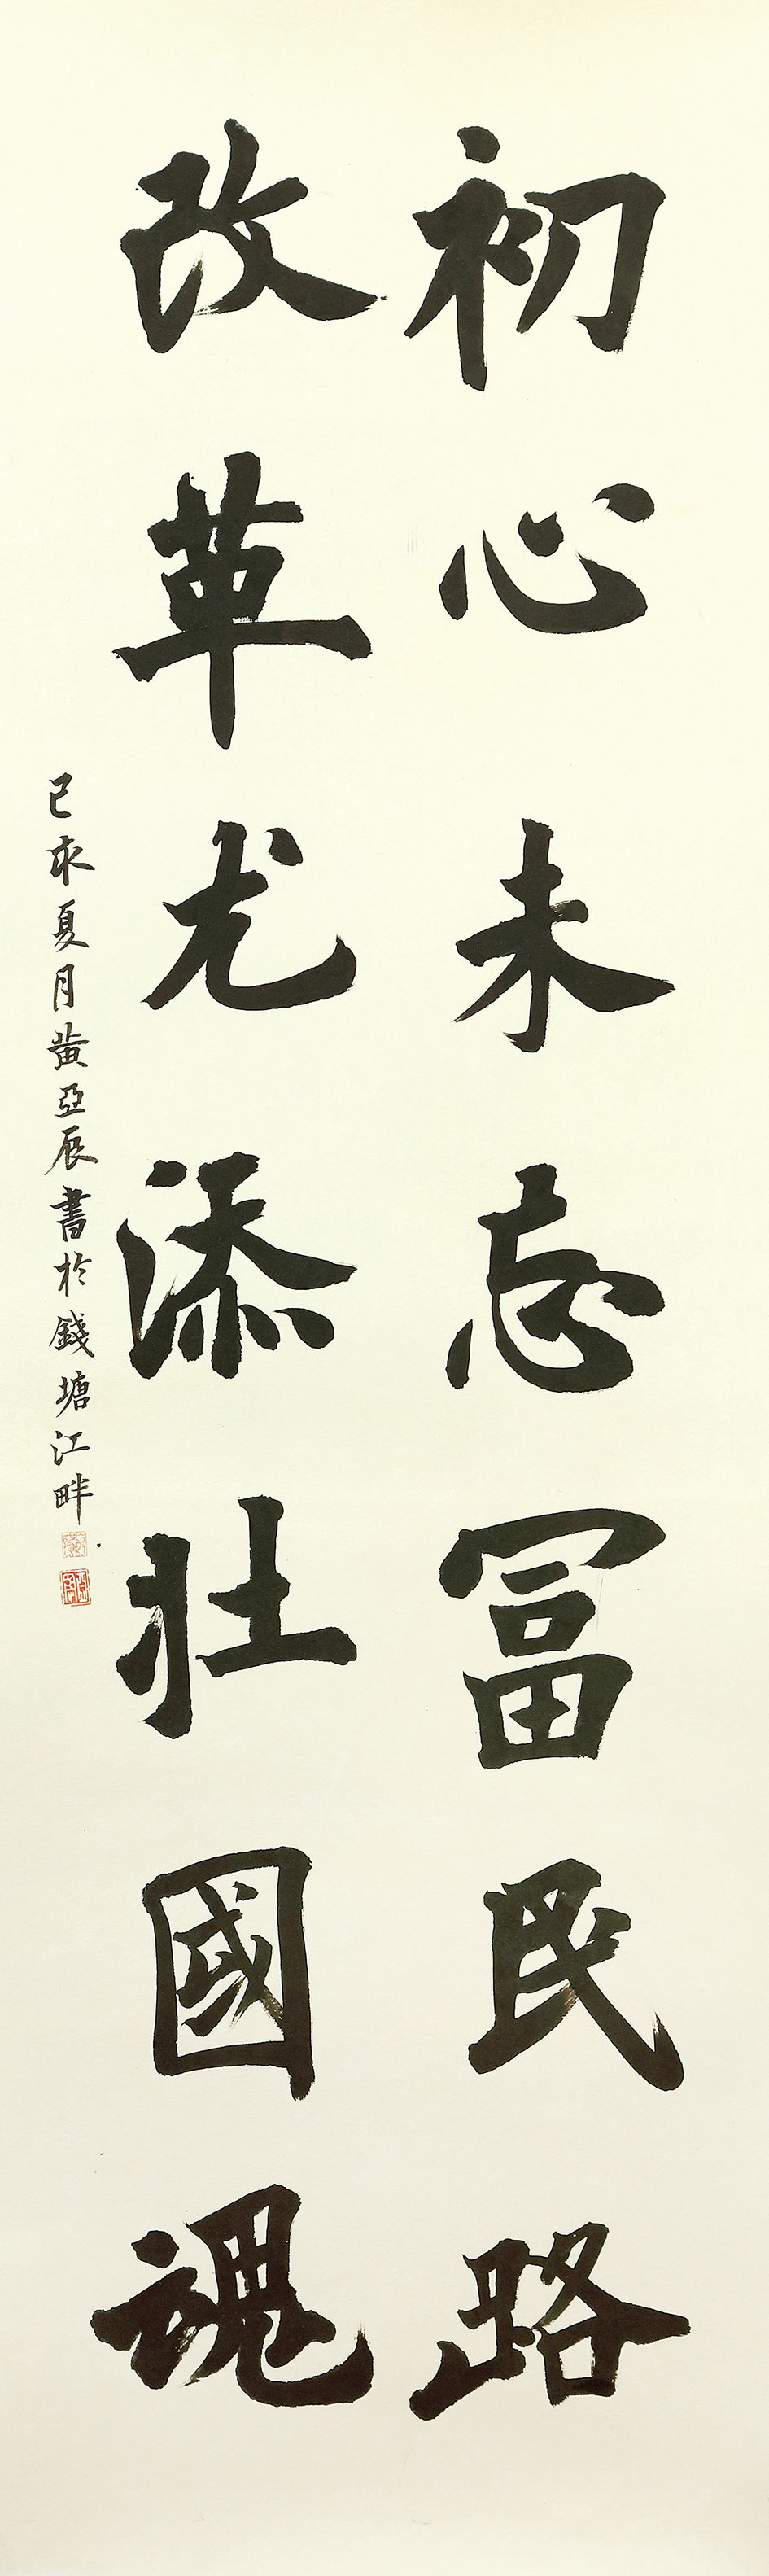 初心未忘冨民路
改革尤添壮國魂
己亥夏月黄亞辰書於錢塘江畔